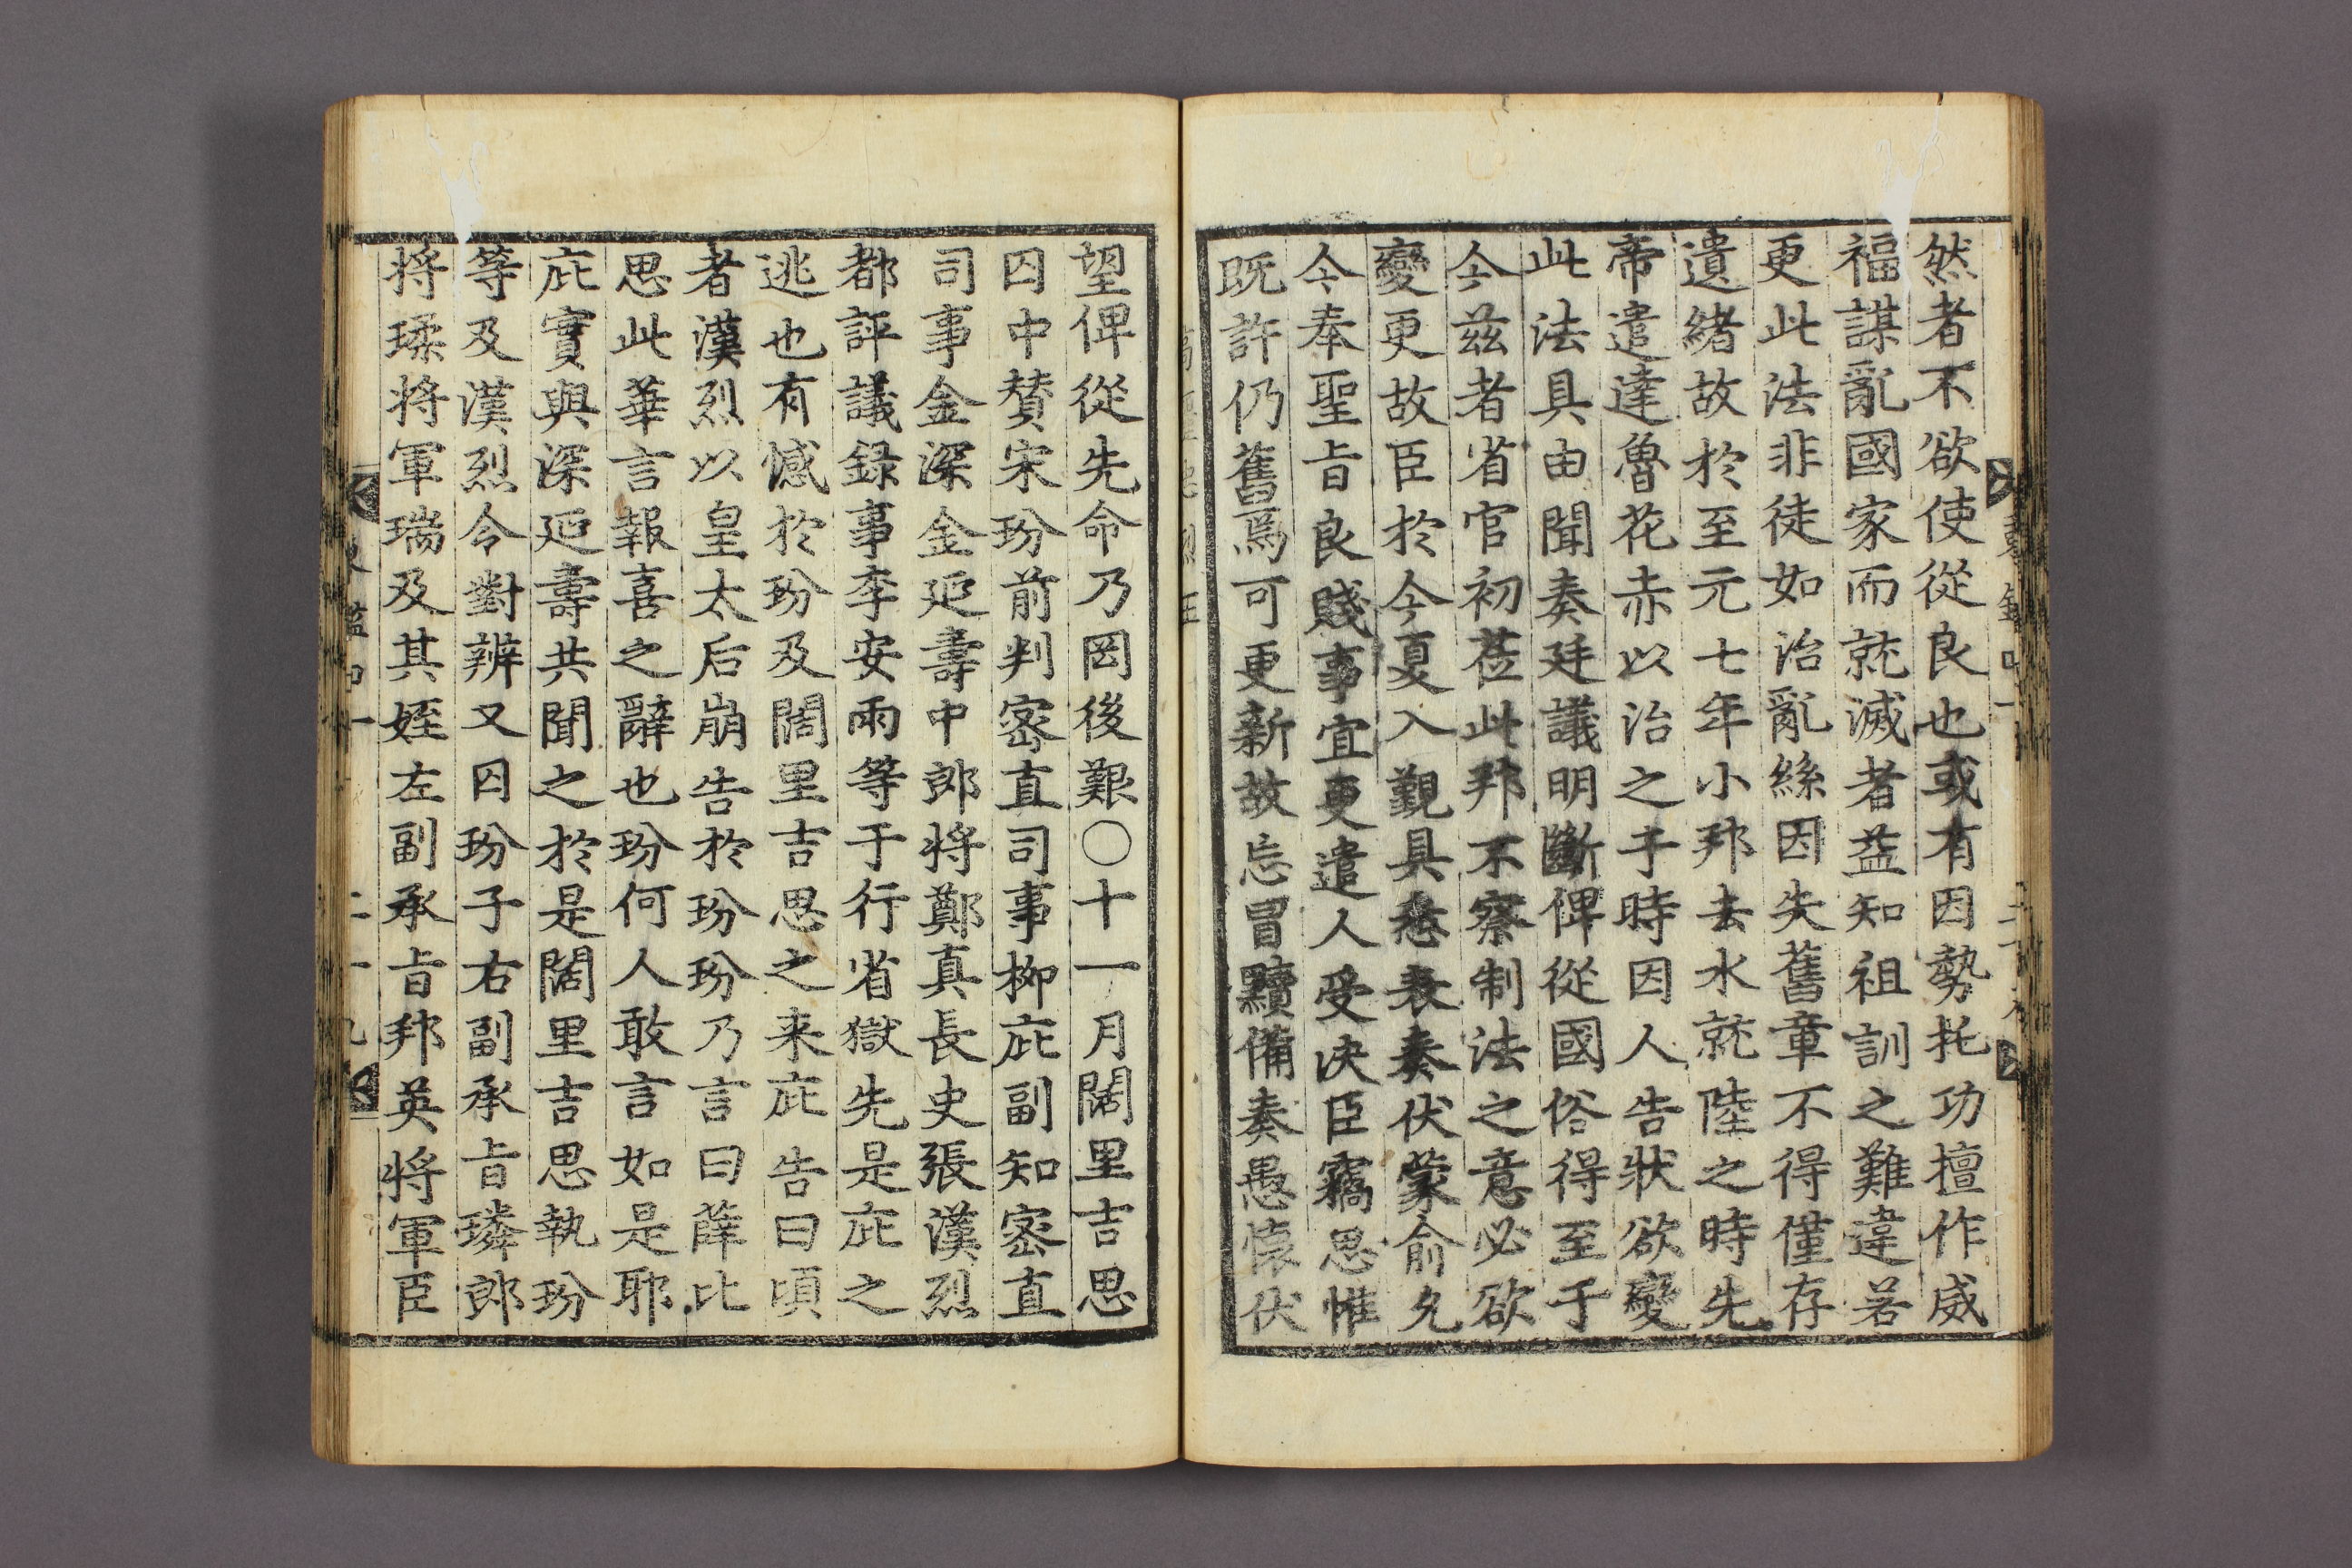 然者不欲使從良也或有因勢托功擅作威
福謀亂國家而就滅者益知祖訓之難違若
更此法非徒如治亂絲因失舊章不得僅存
遺緒故於至元七年小邦去水就陸之時先
帝遣達魯花赤以治之于時因人告狀欲變
此法具由聞奏廷議明斷俾從國俗得至于
今兹者省官初莅此邦不察制法之意必欲
變更故臣於今夏入覲具悉表奏伏蒙俞允
今奉聖旨良賤事宜更遣人受决臣竊思惟
既許仍舊焉可更新故忘冒黷備奏愚懷伏
望俾從先命乃罔後艱○十一月闊里吉思
囚中賛宋玢前判密直司事柳庇副知密直
司事金深金延壽中郎將鄭真長史張漢烈
都評議録事李安雨等于行省獄先是庇之
逃也有憾於玢及闊里吉思之来庇告曰頃
者漢烈以皇太后崩告於玢玢乃言曰薛比
思此華言報喜之辭也玢何人敢言如是耶
庇實與深延壽共聞之於是闊里吉思執玢
等及漢烈令對辨又囚玢子右副承旨璘郎
將瑈將軍瑞及其姪左副承旨邦英將軍臣